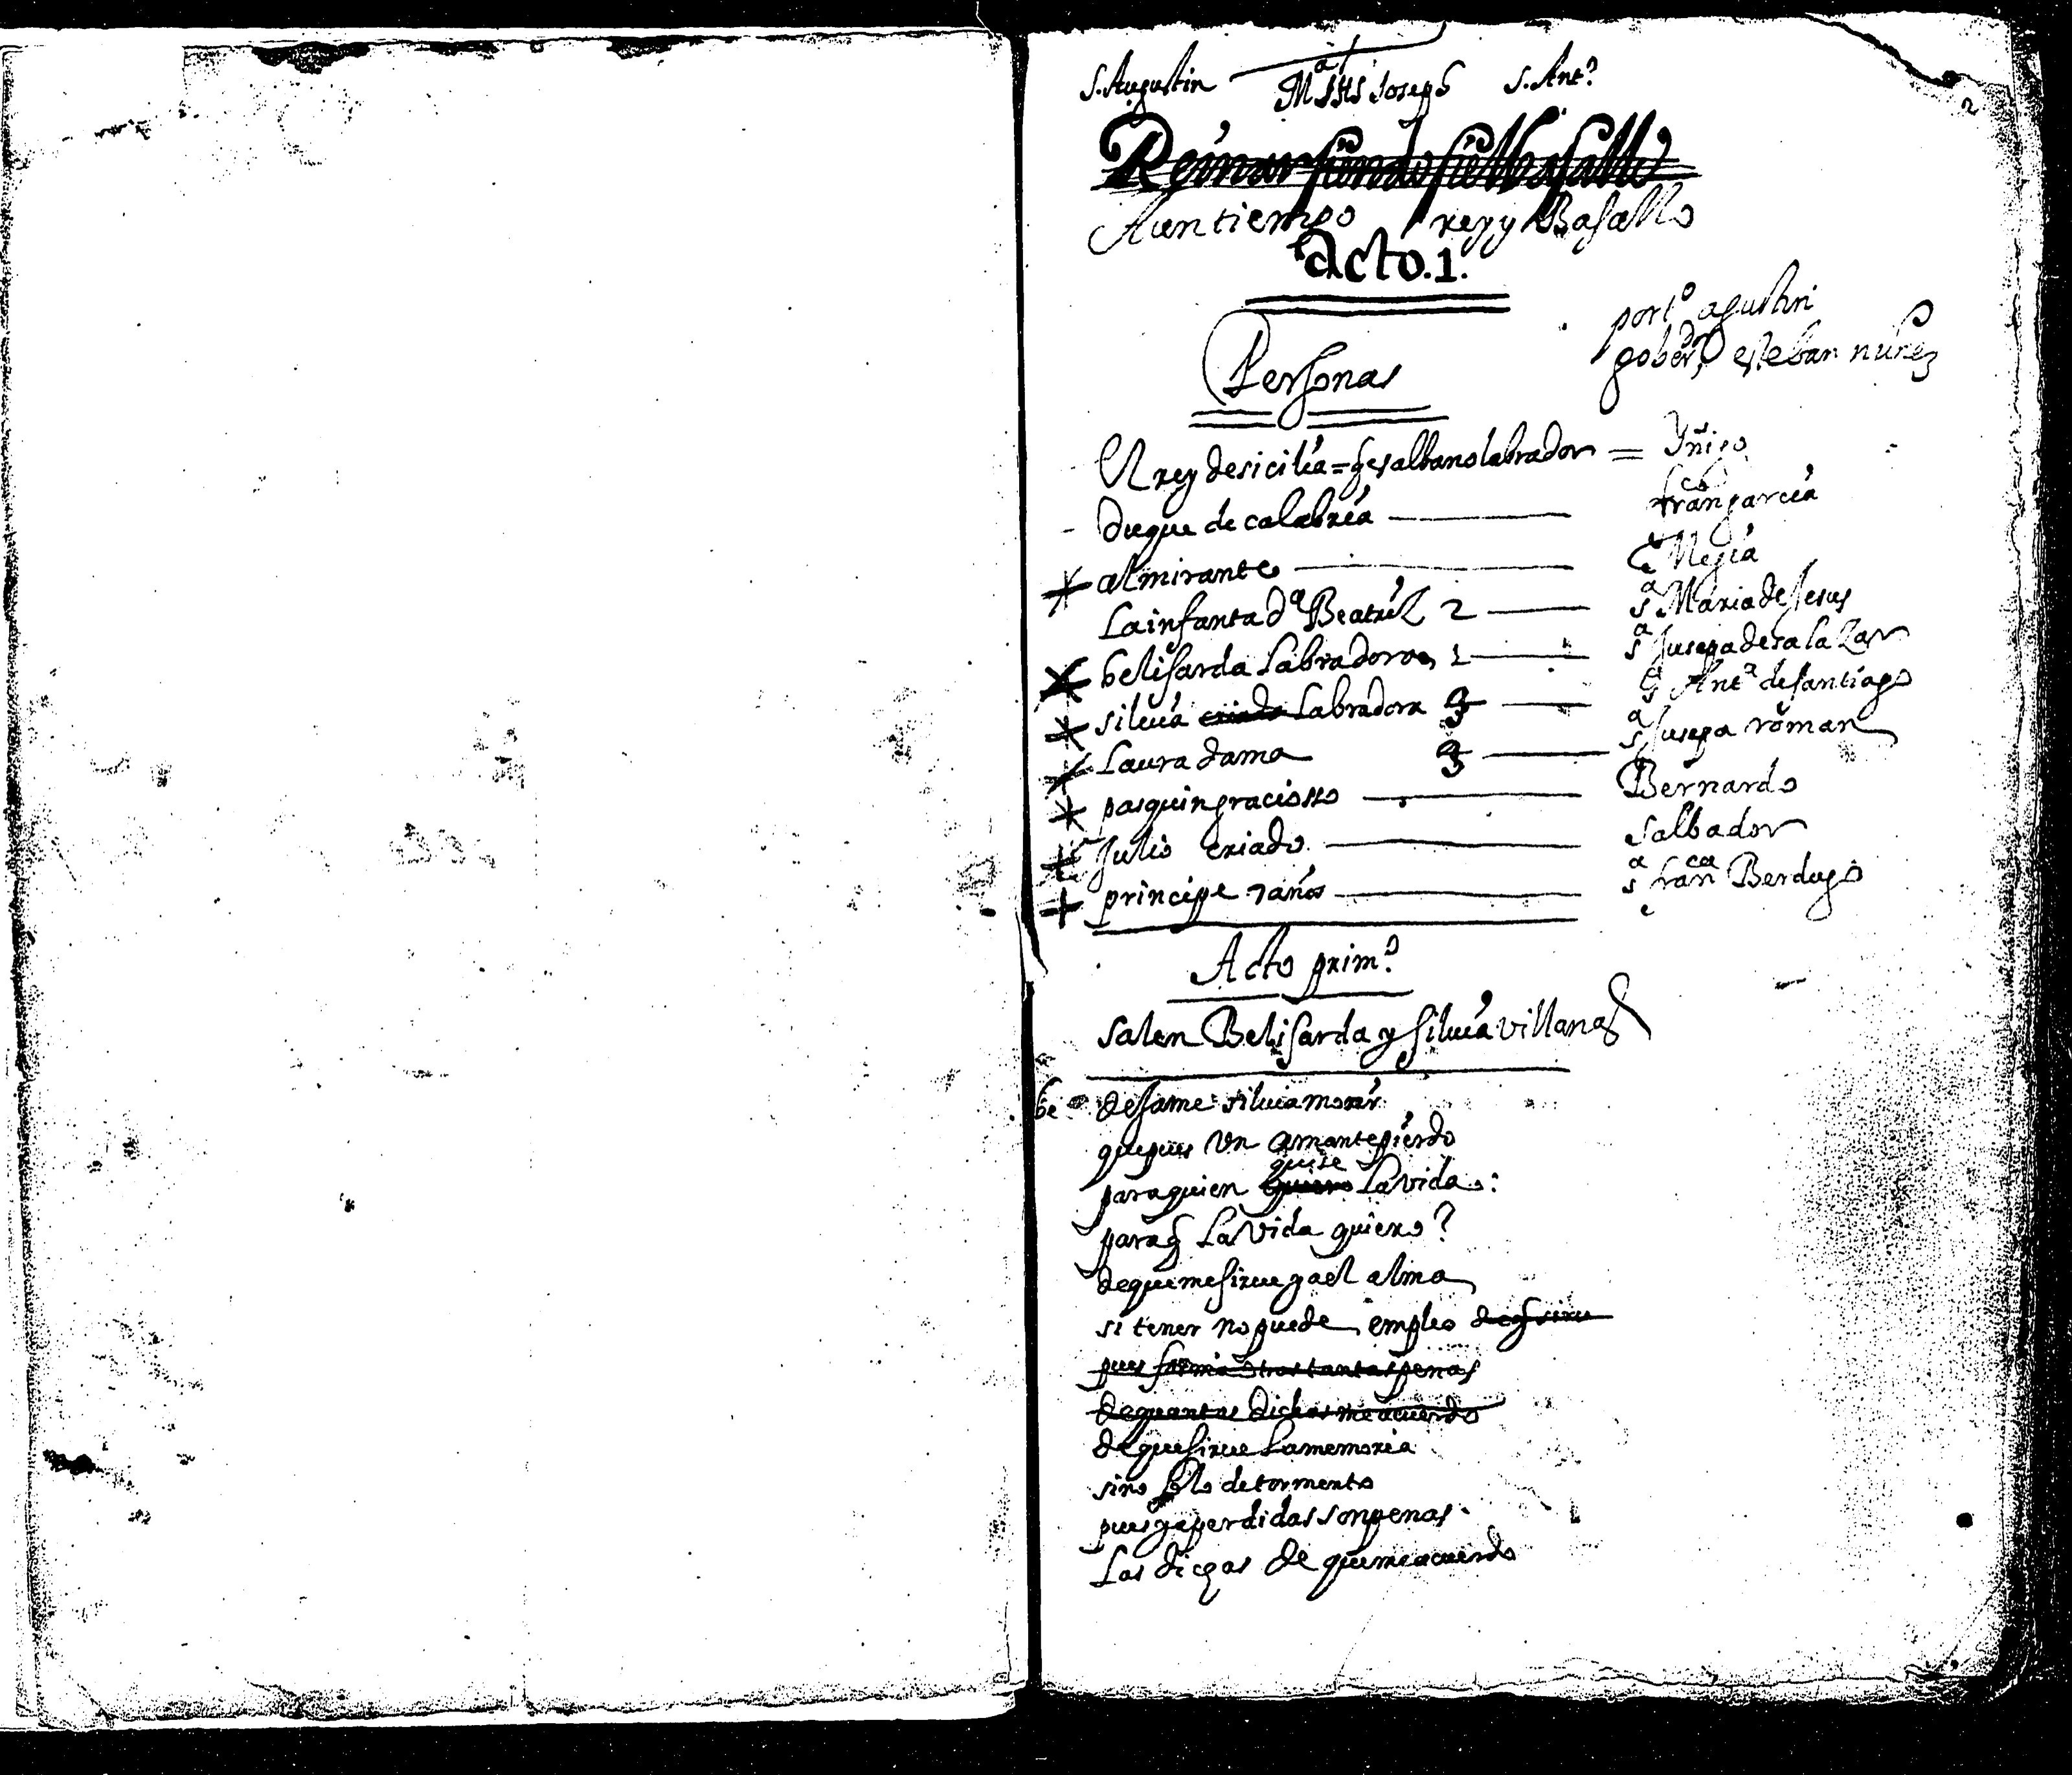 S. Augustin Mª JHS Joseph S. Antº
2
Reinar siendo fiel basallo
A un tiempo rey y Basallo
acto. 1.
portº agustin
gobern esteban nuñez
Personas
El rey de sicilia = gesalbano labrador = Yñigo
duque de calabria — francº garcia
almirante — Mejia
La infanta dª Beatriz 2 — sª Maria de Jesus
belisarda Labradora 1 — sª Jusepa de salaZar
siluia criada Labradora 3 — Antª de santiago
Laura dama 3 — sª Jusepa roman
pasquin graciosso — Bernardo
Julio criado — Salbador
principe 7 años — sª francª Berdugo
Acto primº
Salen Belisarda y siluia villanas
be desame siluia morir
que pues un amante pierdo
para quien quise quiero La vida:
para q La vida quiero?
de que me sirue ya el alma
si tener no puede empleo de q sirue
pues forma otras tantas penas
de quantas dichas me acuerdo
de que sirue La memoria
sino solo de tormento
pues ya perdidas son penas
Las dichas de que me acuerdo